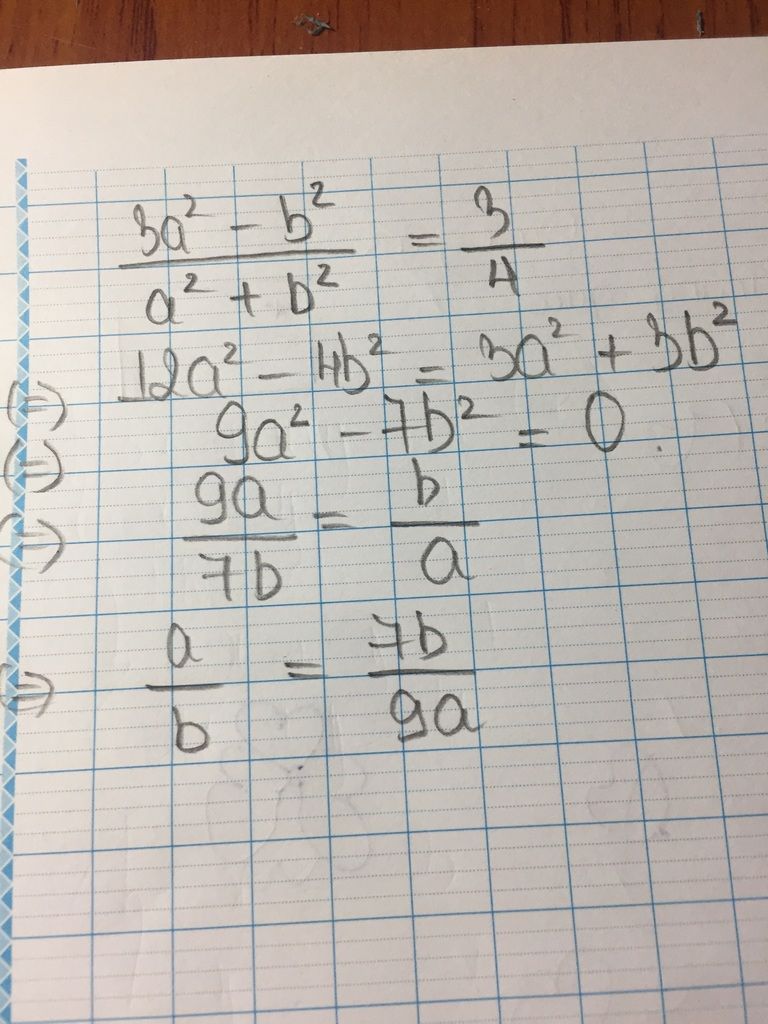 (3a² - b²)/(a² + b²) = 3/4
(=) 12a² - 4b² = 3a² + 3b²
(=) 9a² - 7b² = 0.
(=) 9a/7b = b/a
(=) a/b = 7b/9a